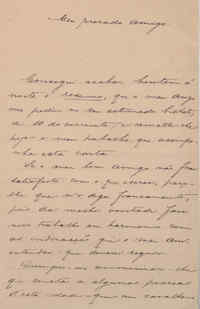 Meu presado amigo
Consegui acabar hontem á
noite o resumo, que o meu amigo
me pediu no seu estimado bilhete
de 10 do corrente, e remetto-lhe
hoje o meu trabalho, que acompa-
nha esta carta.
Se o meu bom amigo não fica
satisfeito com o que escrevi, peço-
lhe que m'o diga francamente,
pois da melhor vontade farei
um trabalho em harmonia com
as indicações que o meu amigo
entender que devem seguir
Cumpre-me communicar-lhe
que remetti a algumas pessoas
d'esta cidade